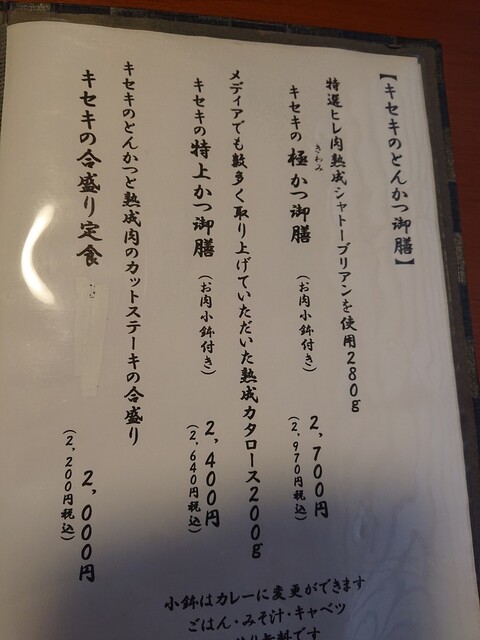 【キセキのとんかつ御膳】
特選ヒレ肉熟成シャトーブリアンを使用280g
キセキの極かつ御膳
きわみ
(お肉小鉢付き)
2,700円
(2,970円税込)
メディアでも数多く取り上げていただいた熟成カタロース200g
キセキの特上かつ御膳
(お肉小鉢付き)
2,400円
(2,640円税込)
キセキのとんかつと熟成肉のカットステーキの合盛り
キセキの合盛り定食
2,000円
(2,200円税込)
小鉢はカレーに変更ができます
ごはん・みそ汁・キャベツ
無料です